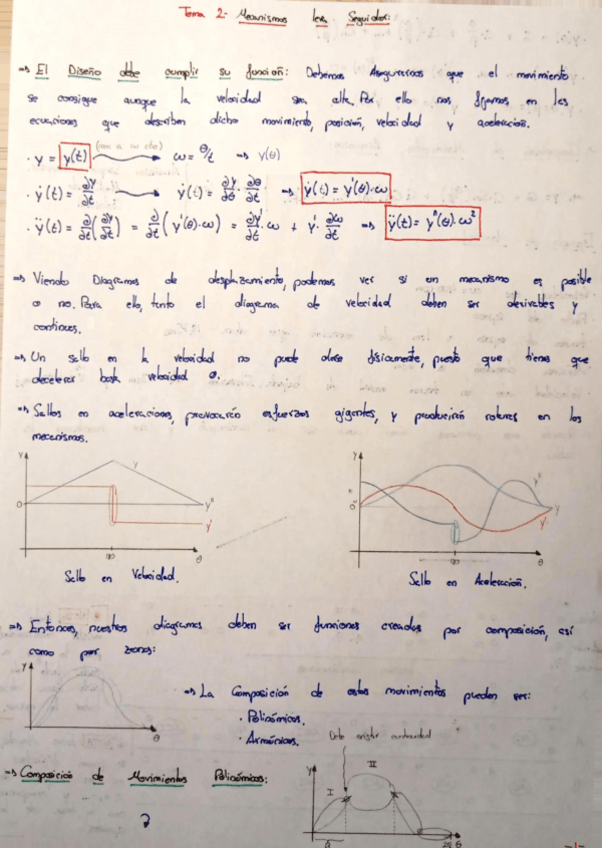 Tema 2.- Mecanismos leva Seguidor:
⇒ El Diseño debe cumplir su función: Debemos Asegurarnos que el movimiento
se consigue aunque la velocidad sea alta. Por ello nos fijamos en las
ecuaciones que describen dicho movimiento, posición, velocidad y aceleración.
· y = y(t) → ω = θ/t ⇒ y(θ)
· ẏ(t) = ∂y/∂t → ẏ(t) = ∂y/∂θ · ∂θ/∂t ⇒ ẏ(t) = y'(θ)·ω
· ÿ(t) = ∂/∂t (∂y/∂t) = ∂/∂t (y'(θ)·ω) = ∂y'/∂t · ω + y' · ∂ω/∂t ⇒ ÿ(t) = y''(θ)·ω²
⇒ Viendo Diagramas de desplazamiento, podemos ver si un mecanismo es posible
o no. Para ello, tanto el diagrama de velocidad deben ser derivables y
continuos.
⇒ Un salto en la velocidad no puede darse físicamente, puesto que tienes que
decelerar hasta velocidad 0.
⇒ Saltos en aceleraciones, provocarán esfuerzos gigantes, y producirán roturas en los
mecanismos.
y y y'' y' 0 180 θ
y y'' y y' 0 180 θ
Salto en Velocidad.
Salto en Aceleración.
⇒ Entonces, nuestros diagramas deben ser funciones creadas por composición, así
como por zonas:
y θ
⇒ La Composición de estos movimientos pueden ser:
· Polinómicos.
· Armónicos.
Debe existir continuidad
⇒ Composición de Movimientos Polinómicos:
y I II θ
-1-